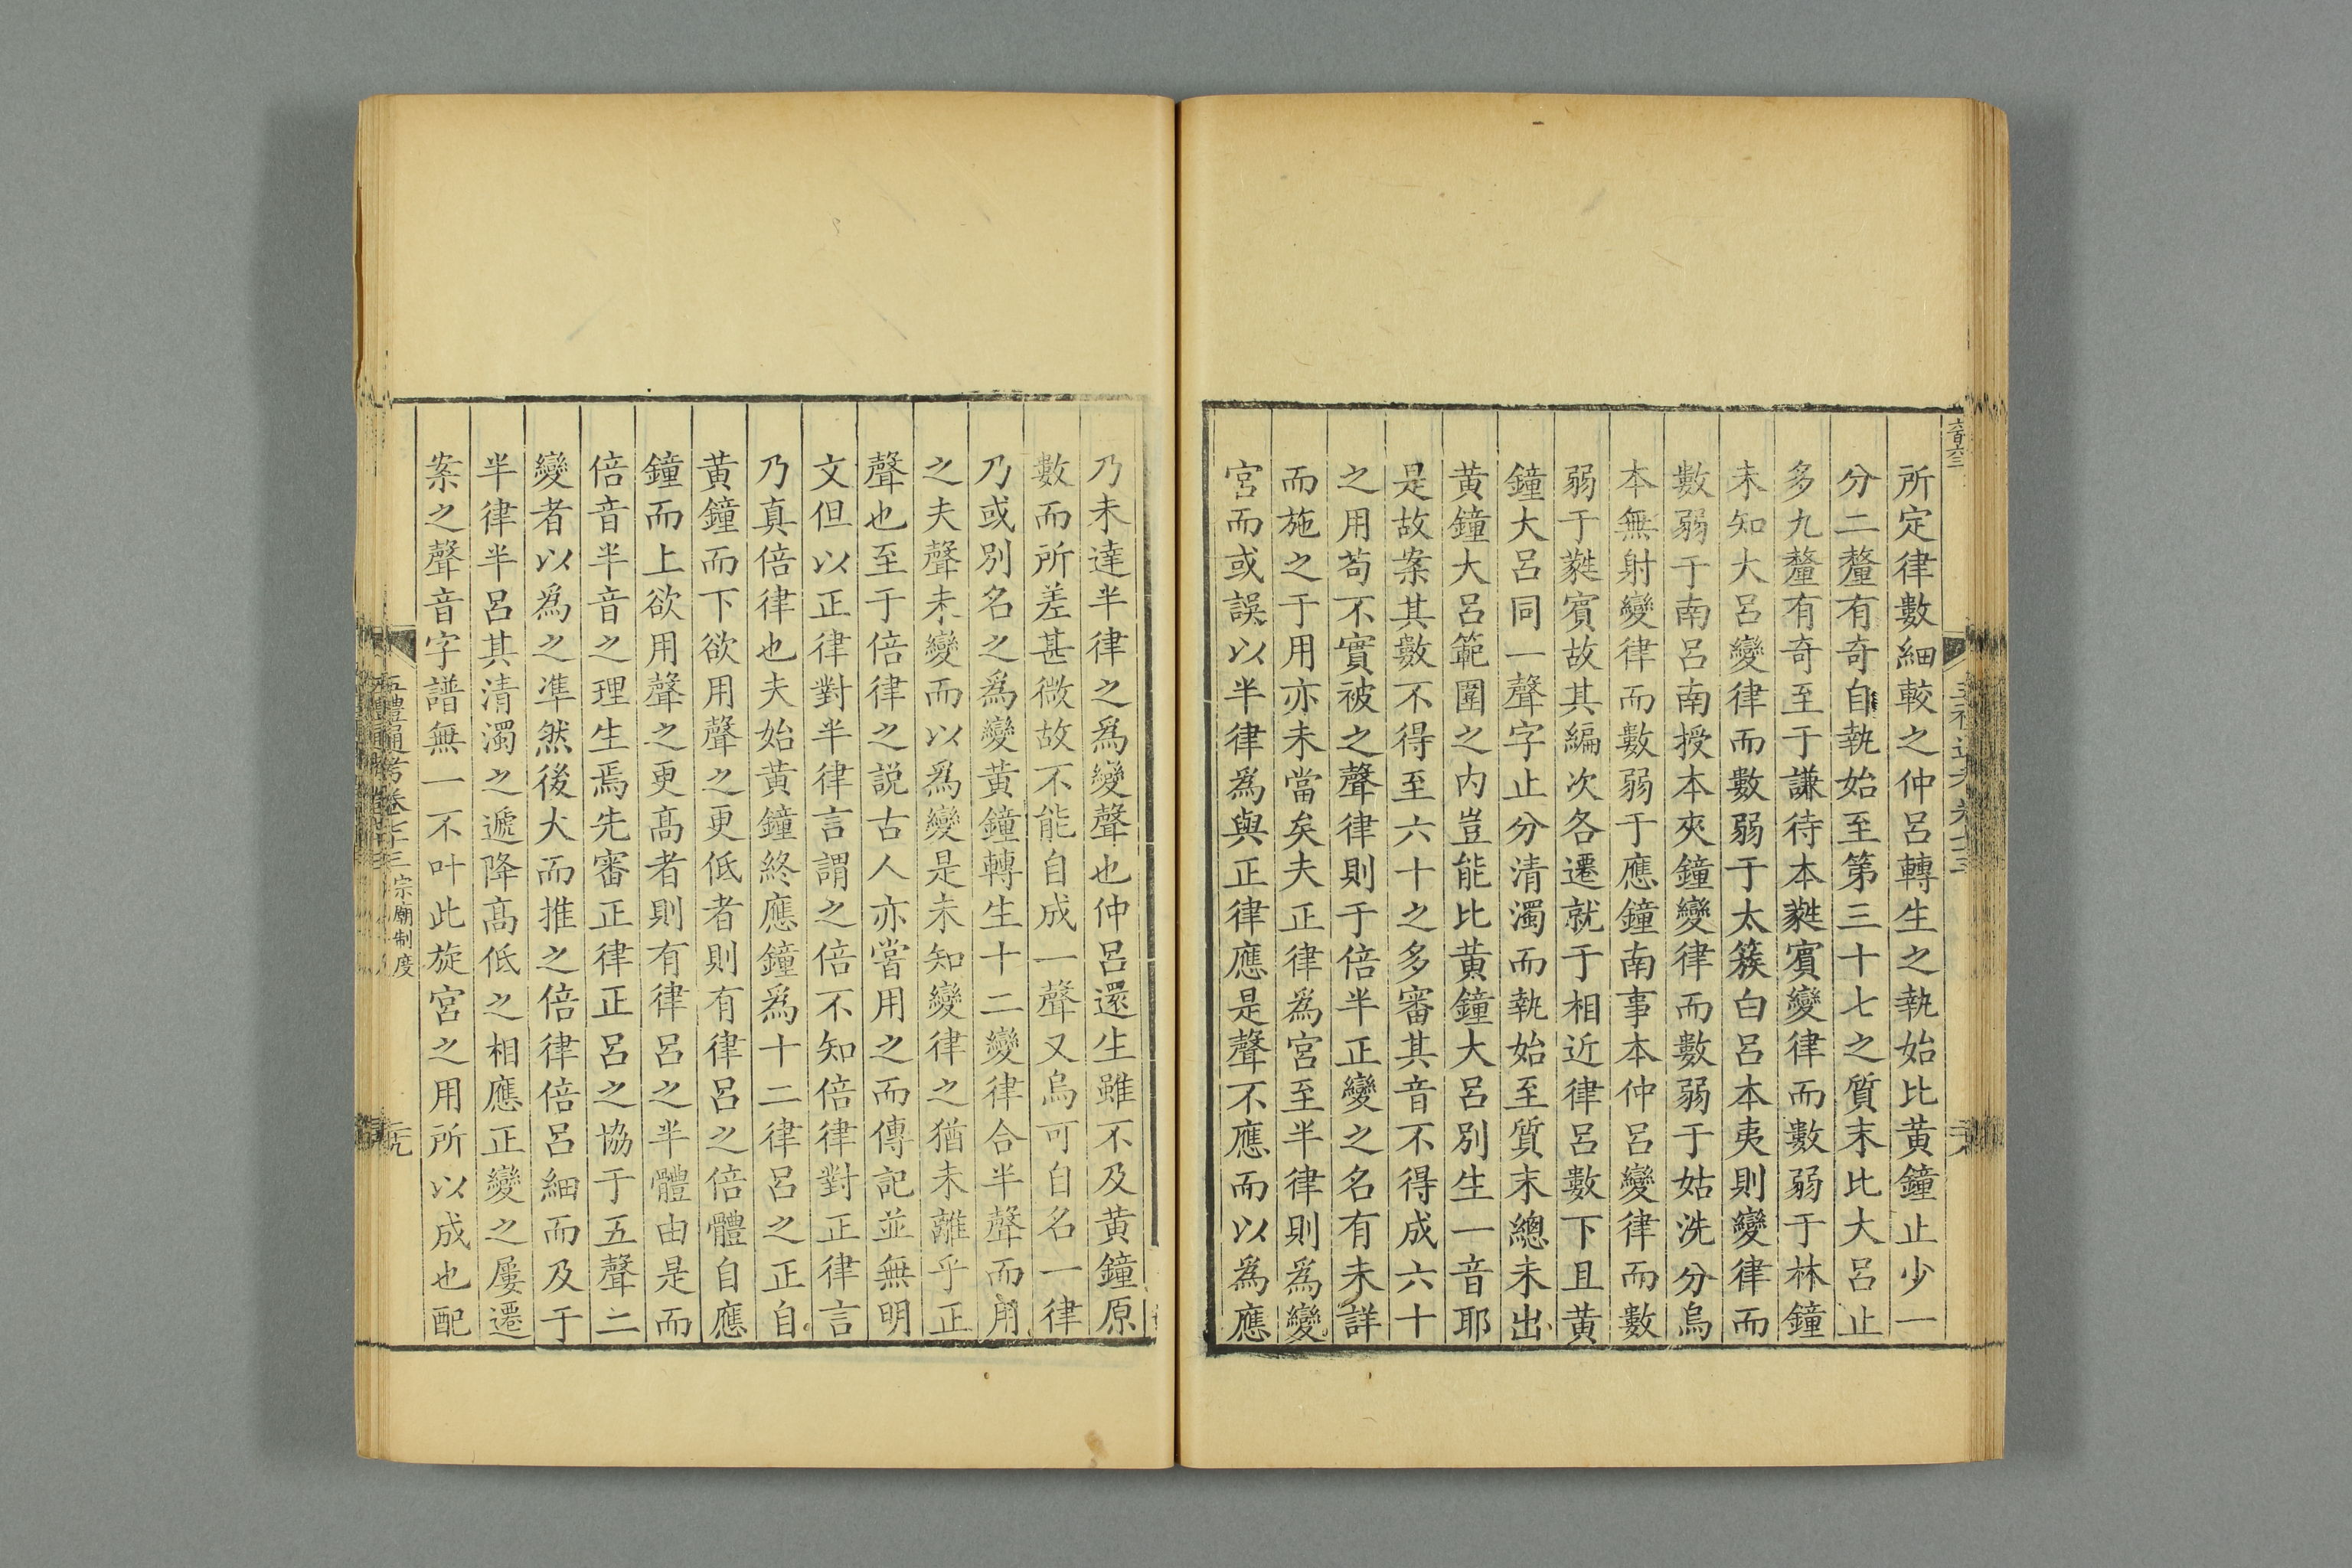 所定律數細較之仲呂轉生之執始比黃鐘止少一
分二釐有奇自執始至第三十七之質末比大呂止
多九釐有奇至于謙待本蕤賓變律而數弱于林鐘
未知大呂變律而數弱于太簇白呂本夷則變律而
數弱于南呂南授本夾鐘變律而數弱于姑洗分烏
本無射變律而數弱于應鐘南事本仲呂變律而數
弱于蕤賓故其編次各遷就于相近律呂數下且黃
鐘大呂同一聲字止分清濁而執始至質末總未出
黃鐘大呂範圍之內豈能比黃鐘大呂別生一音耶
是故案其數不得至六十之多審其音不得成六十
之用苟不實被之聲律則于倍半正變之名有未詳
而施之于用亦未當矣夫正律為宮至半律則為變
宮而或誤以半律為與正律應是聲不應而以為應
乃未達半律之為變聲也仲呂還生雖不及黃鐘原
數而所差甚微故不能自成一聲又烏可自名一律
乃或別名之為變黃鐘轉生十二變律合半聲而用
之夫聲未變而以為變是未知變律之猶未離乎正
聲也至于倍律之説古人亦嘗用之而傳記並無明
文但以正律對半律言謂之倍不知倍律對正律言
乃真倍律也夫始黃鐘終應鐘為十二律呂之正自
黃鐘而下欲用聲之更低者則有律呂之倍體自應
鐘而上欲用聲之更高者則有律呂之半體由是而
倍音半音之理生焉先審正律正呂之協于五聲二
變者以為之準然後大而推之倍律倍呂細而及于
半律半呂其清濁之遞降高低之相應正變之屢遷
案之聲音字譜無一不叶此旋宮之用所以成也配
五禮通考卷七十三 宗廟制度